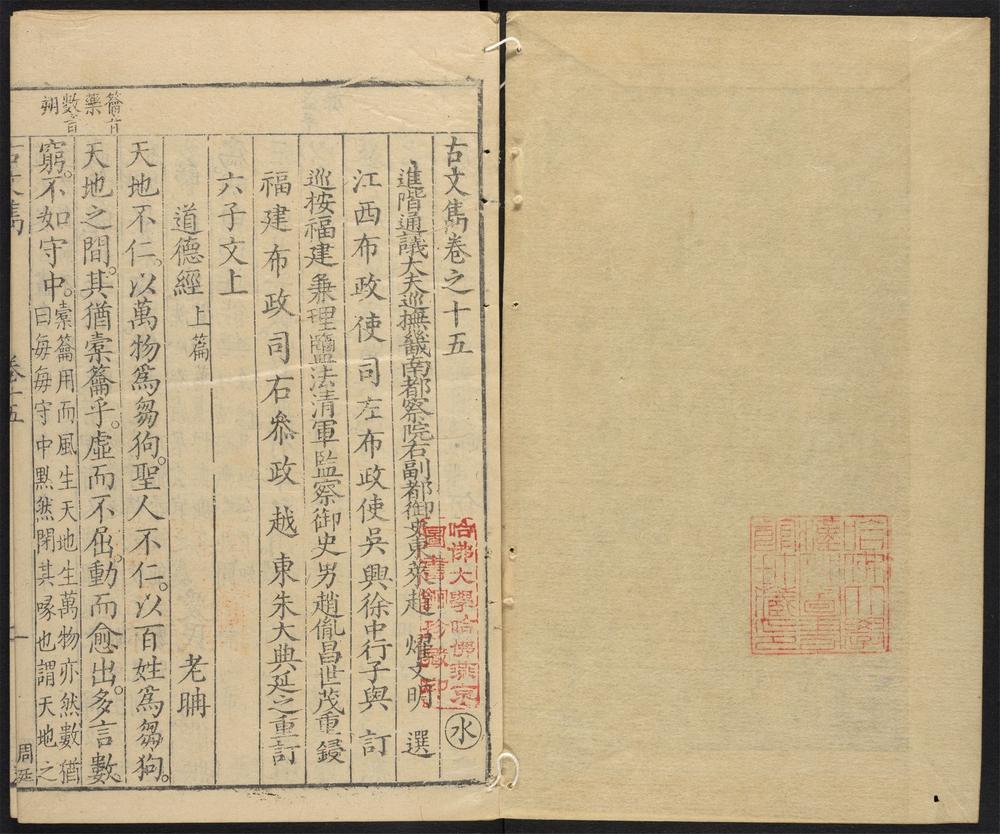 古文雋卷之十五
進階通議大夫巡撫畿南都察院右副都御史東萊趙燿文明選
江西布政使司左布政使吳興徐中行子與訂
巡按福建兼理鹽法清軍監察御史男趙胤昌世茂重鋟
福建布政司右叅政越東朱大典延之重訂
六子文上
道德經上篇 老聃
天地不仁。以萬物爲芻狗。聖人不仁。以百姓爲芻狗。
天地之間。其猶橐籥乎。虛而不屈。動而愈出。多言數
窮。不如守中。
橐籥用而風生天地生萬物亦然數猶
曰每每守中黙然閉其喙也謂天地之
籥音
藥
數音
朔
古文雋 卷十五 一
周延
水
哈佛大學哈佛燕京
圖書館珍藏印
哈佛大學
漢和圖書
館珍藏印